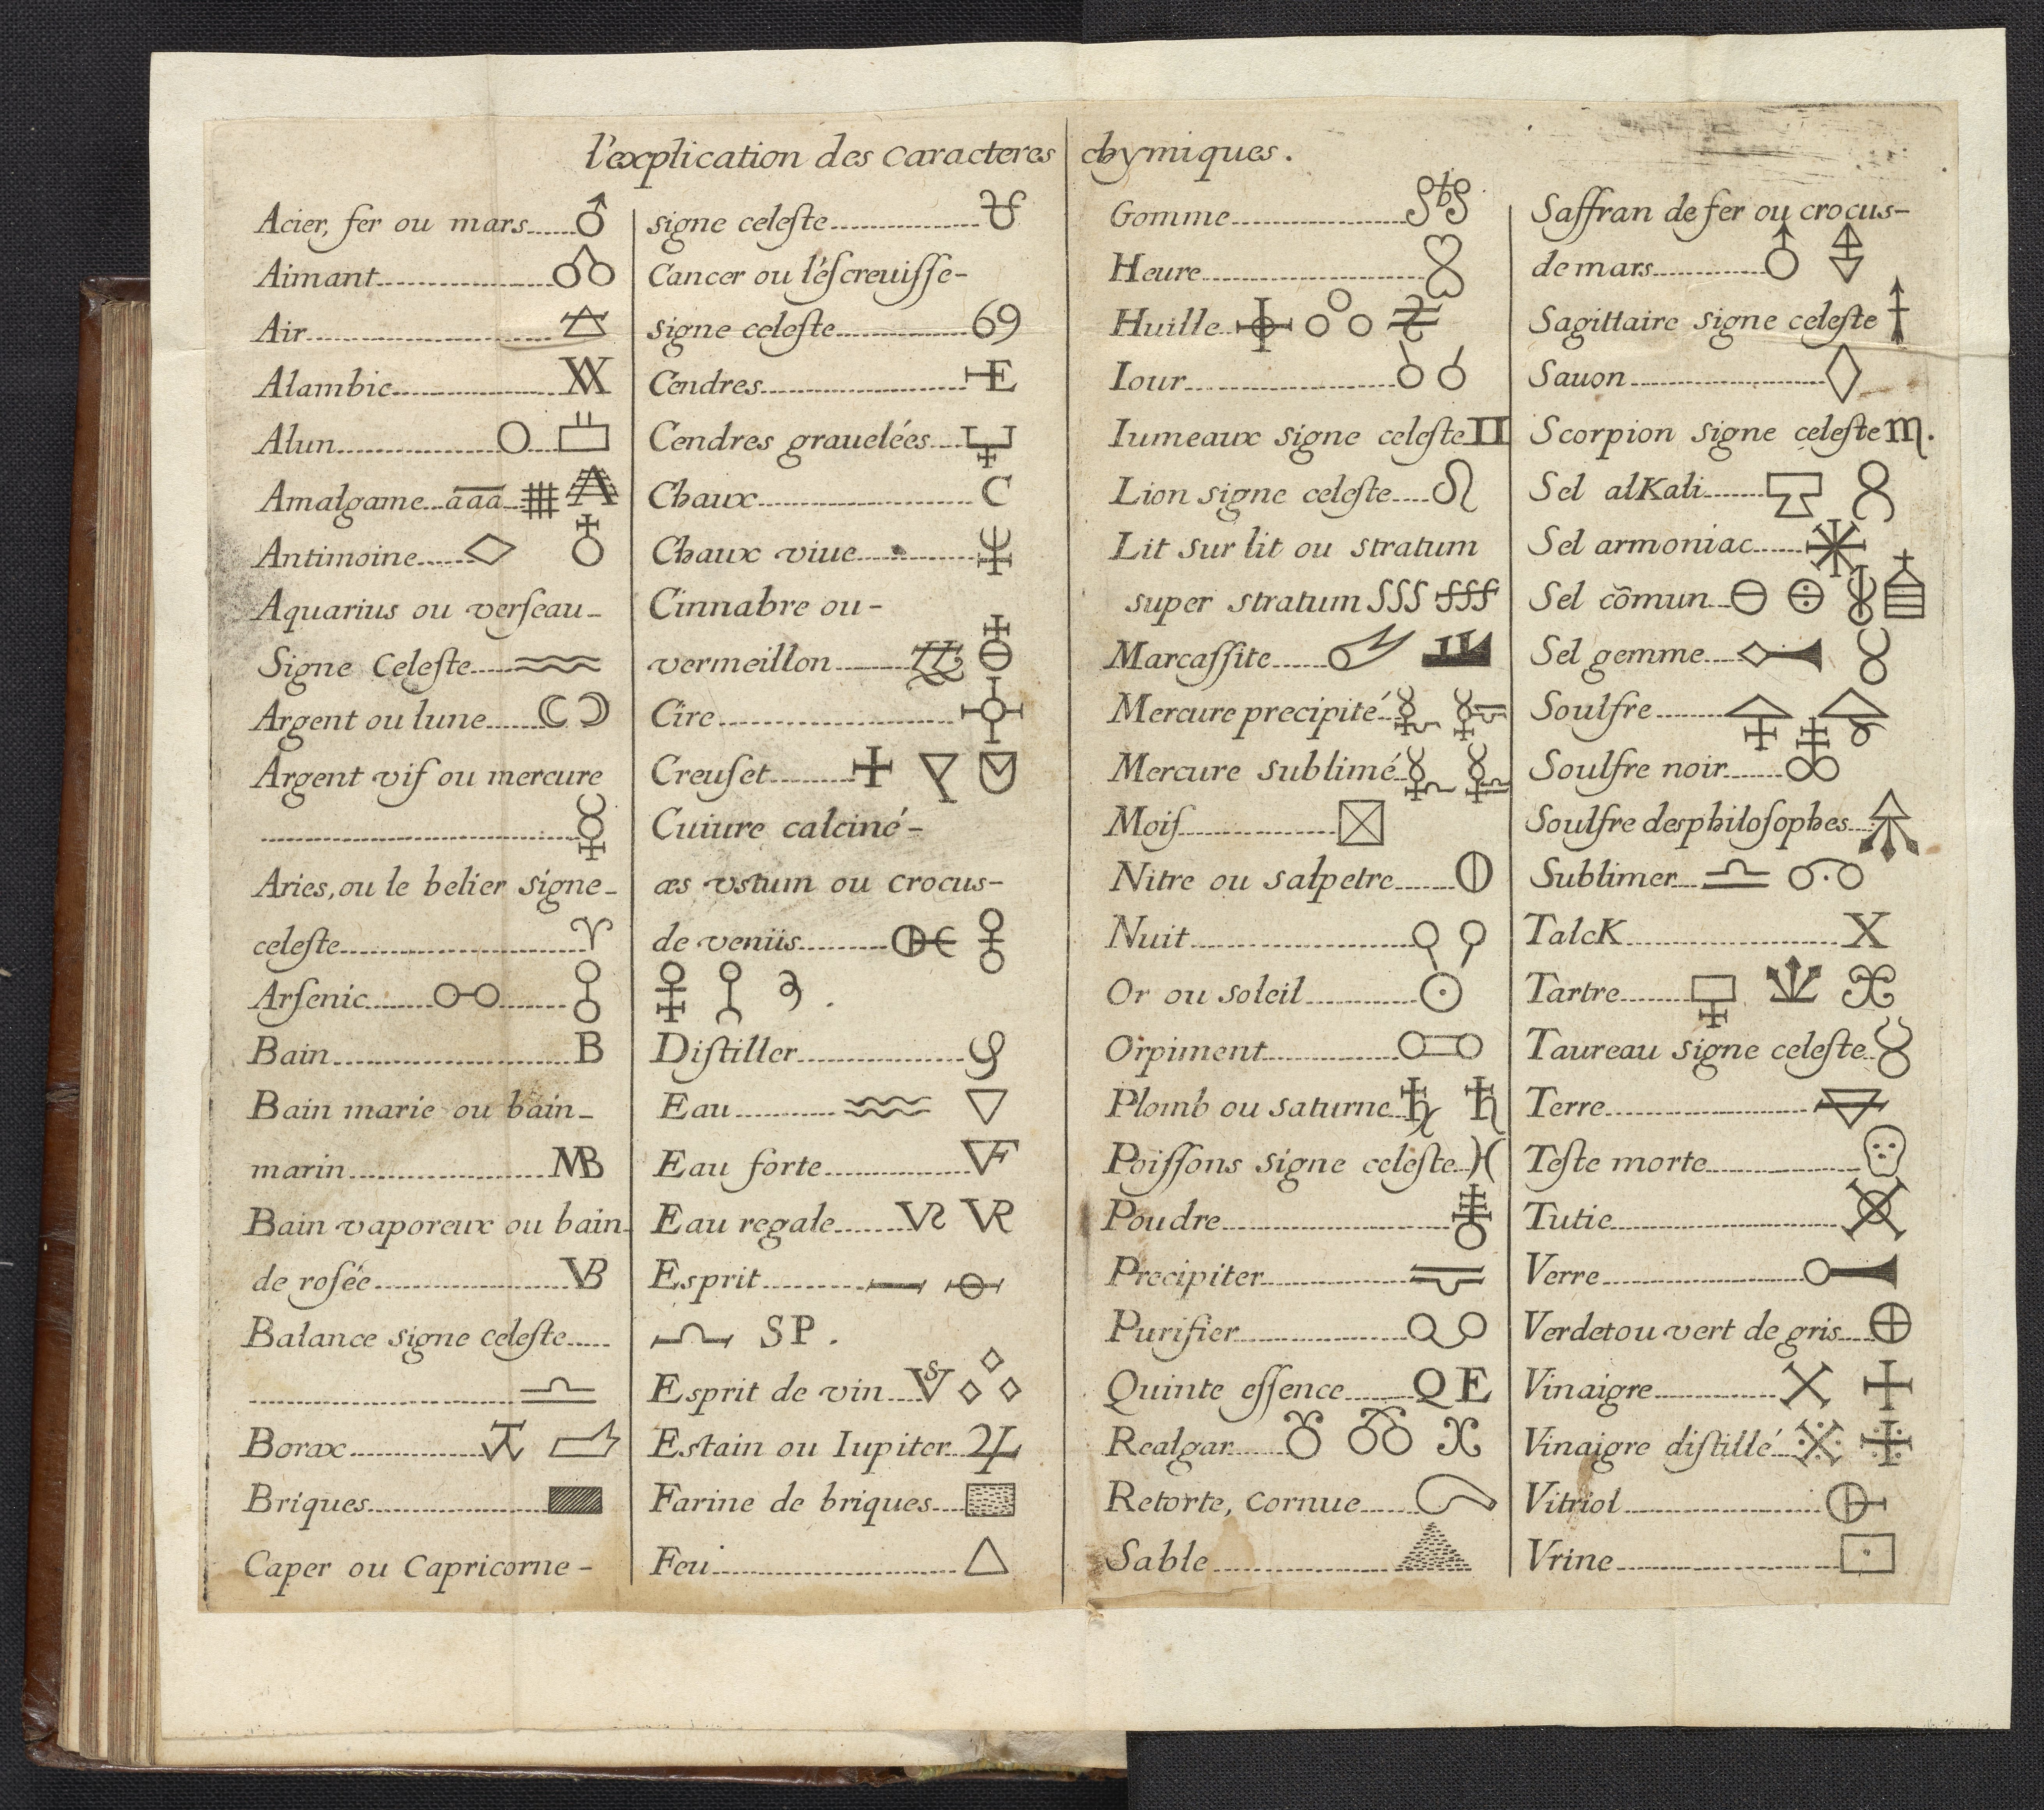 l'explication des caracteres chymiques.
Acier, fer ou mars
Aimant
Air
Alambic
Alun
Amalgame aaa
Antimoine
Aquarius ou verſeau
Signe Celeſte
Argent ou lune
Argent vif ou mercure
Aries, ou le belier signe
celeſte
Arſenic
Bain B
Bain marie ou bain
marin MB
Bain vaporeux ou bain
de roſée VB
Balance signe celeſte
Borax
Briques
Caper ou Capricorne
signe celeſte
Cancer ou l'éſcreuiſſe
signe celeſte 69
Cendres E
Cendres grauelées
Chaux C
Chaux viue
Cinnabre ou
vermeillon
Cire
Creuſet
Cuiure calciné
æs vstum ou crocus
de venüs
Diſtiller
Eau
Eau forte VF
Eau regale VR
Esprit
SP.
Esprit de vin
Estain ou Iupiter
Farine de briques
Feu
Gomme
Heure
Huille
Iour
Iumeaux signe celeſte
Lion signe celeſte
Lit sur lit ou stratum
super stratum SSS
Marcaſſite
Mercure precipité
Mercure sublimé
Moiſ
Nitre ou salpetre
Nuit
Or ou soleil
Orpiment
Plomb ou saturne
Poiſſons signe celeſte
Poudre
Precipiter
Purifier
Quinte eſſence QE
Realgar
Retorte, cornue
Sable
Saffran de fer ou crocus
de mars
Sagittaire signe celeſte
Sauon
Scorpion signe celeſte
Sel alKali
Sel armoniac
Sel cõmun
Sel gemme
Soulfre
Soulfre noir
Soulfre des philoſophes
Sublimer
TalcK X
Tartre
Taureau signe celeſte
Terre
Teſte morte
Tutie
Verre
Verdet ou vert de gris
Vinaigre
Vinaigre diſtillé
Vitriol
Vrine